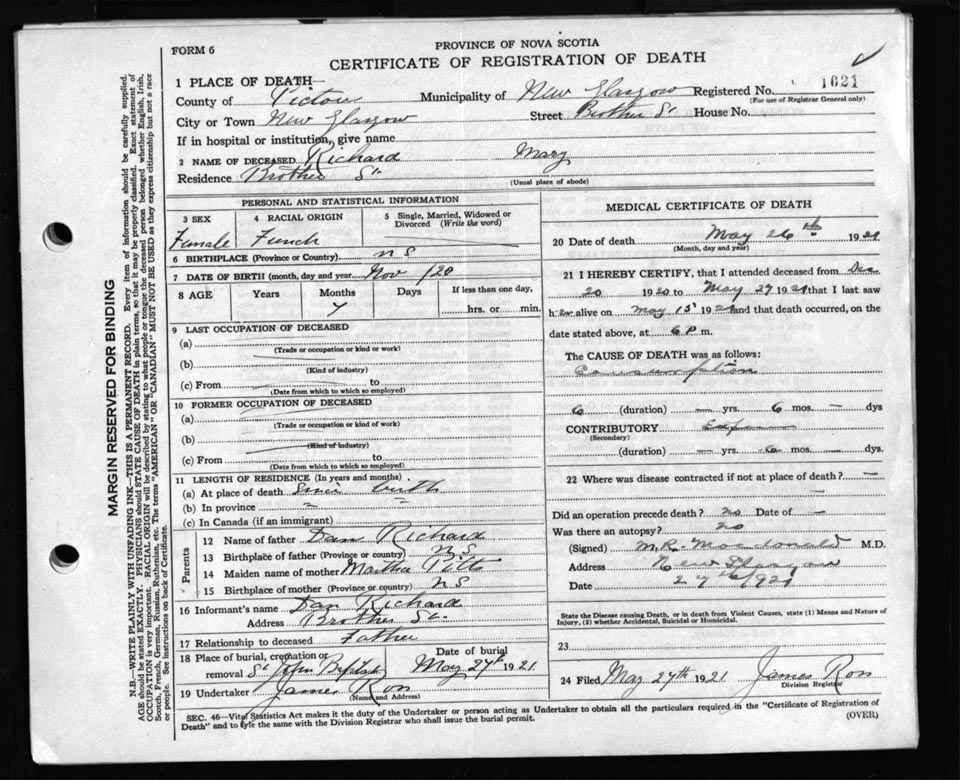 FORM 6
PROVINCE OF NOVA SCOTIA
CERTIFICATE OF REGISTRATION OF DEATH
1 PLACE OF DEATH—
1621
County of Pictou Municipality of New Glasgow Registered No.
(For use of Registrar General only)
City or Town New Glasgow Street Brother St House No.
If in hospital or institution, give name
2 NAME OF DECEASED Richard Mary
Residence Brother St
(Usual place of abode)
PERSONAL AND STATISTICAL INFORMATION
3 SEX 4 RACIAL ORIGIN 5 Single, Married, Widowed or Divorced (Write the word)
Female French
6 BIRTHPLACE (Province or Country) N S
7 DATE OF BIRTH (month, day and year) Nov 120
8 AGE Years Months Days If less than one day,
7 hrs. or min.
9 LAST OCCUPATION OF DECEASED
(a)
(Trade or occupation or kind or work)
(b)
(Kind of industry)
(c) From to
(Date from which to which so employed)
10 FORMER OCCUPATION OF DECEASED
(a)
(Trade or occupation or kind of work)
(b)
(Kind of industry)
(c) From to
(Date from which to which so employed)
11 LENGTH OF RESIDENCE (In years and months)
(a) At place of death Since birth
(b) In province
(c) In Canada (if an immigrant)
Parents
12 Name of father Dan Richard
13 Birthplace of father (Province or country) N S
14 Maiden name of mother Martha
15 Birthplace of mother (Province or country) N S
16 Informant's name Dan Richard
Address Brother St.
17 Relationship to deceased Father
18 Place of burial, cremation or removal St John Baptist Date of burial May 27th 1921
19 Undertaker James
(Name and Address)
MEDICAL CERTIFICATE OF DEATH
20 Date of death May 26th 1921
(Month, day and year)
21 I HEREBY CERTIFY, that I attended deceased from Dec
20 1920 to May 27 1921 that I last saw
her alive on May 15 1921 and that death occurred, on the
date stated above, at 6 P m.
The CAUSE OF DEATH was as follows:
Consumption
6 (duration) — yrs. 6 mos. — dys
CONTRIBUTORY
(Secondary)
(duration) — yrs. 6 mos. — dys
22 Where was disease contracted if not at place of death? —
Did an operation precede death? no Date of —
Was there an autopsy? no
(Signed) M.R. Macdonald M.D.
Address New Glasgow
Date
State the Disease causing Death, or in death from Violent Causes, state (1) Means and Nature of Injury, (2) whether Accidental, Suicidal or Homicidal.
23
24 Filed May 27th 1921 James
Division Registrar
SEC. 46—Vital Statistics Act makes it the duty of the Undertaker or person acting as Undertaker to obtain all the particulars required in the "Certificate of Registration of
Death" and to file the same with the Division Registrar who shall issue the burial permit.
(OVER)
MARGIN RESERVED FOR BINDING
N.B.—WRITE PLAINLY WITH UNFADING INK—THIS IS A PERMANENT RECORD. Every item of information should be carefully supplied.
AGE should be stated EXACTLY. PHYSICIANS should STATE CAUSE OF DEATH in plain terms, so that it may be properly classified. Exact statement of
OCCUPATION is very important. RACIAL ORIGIN will be described by stating to what people or tongue the deceased person belonged whether English, Irish,
Scotch, French, German, Russian, Ruthenian, etc. The terms "AMERICAN" OR "CANADIAN" MUST NOT BE USED as they express citizenship but not a race
or people. See instructions on back of Certificate.